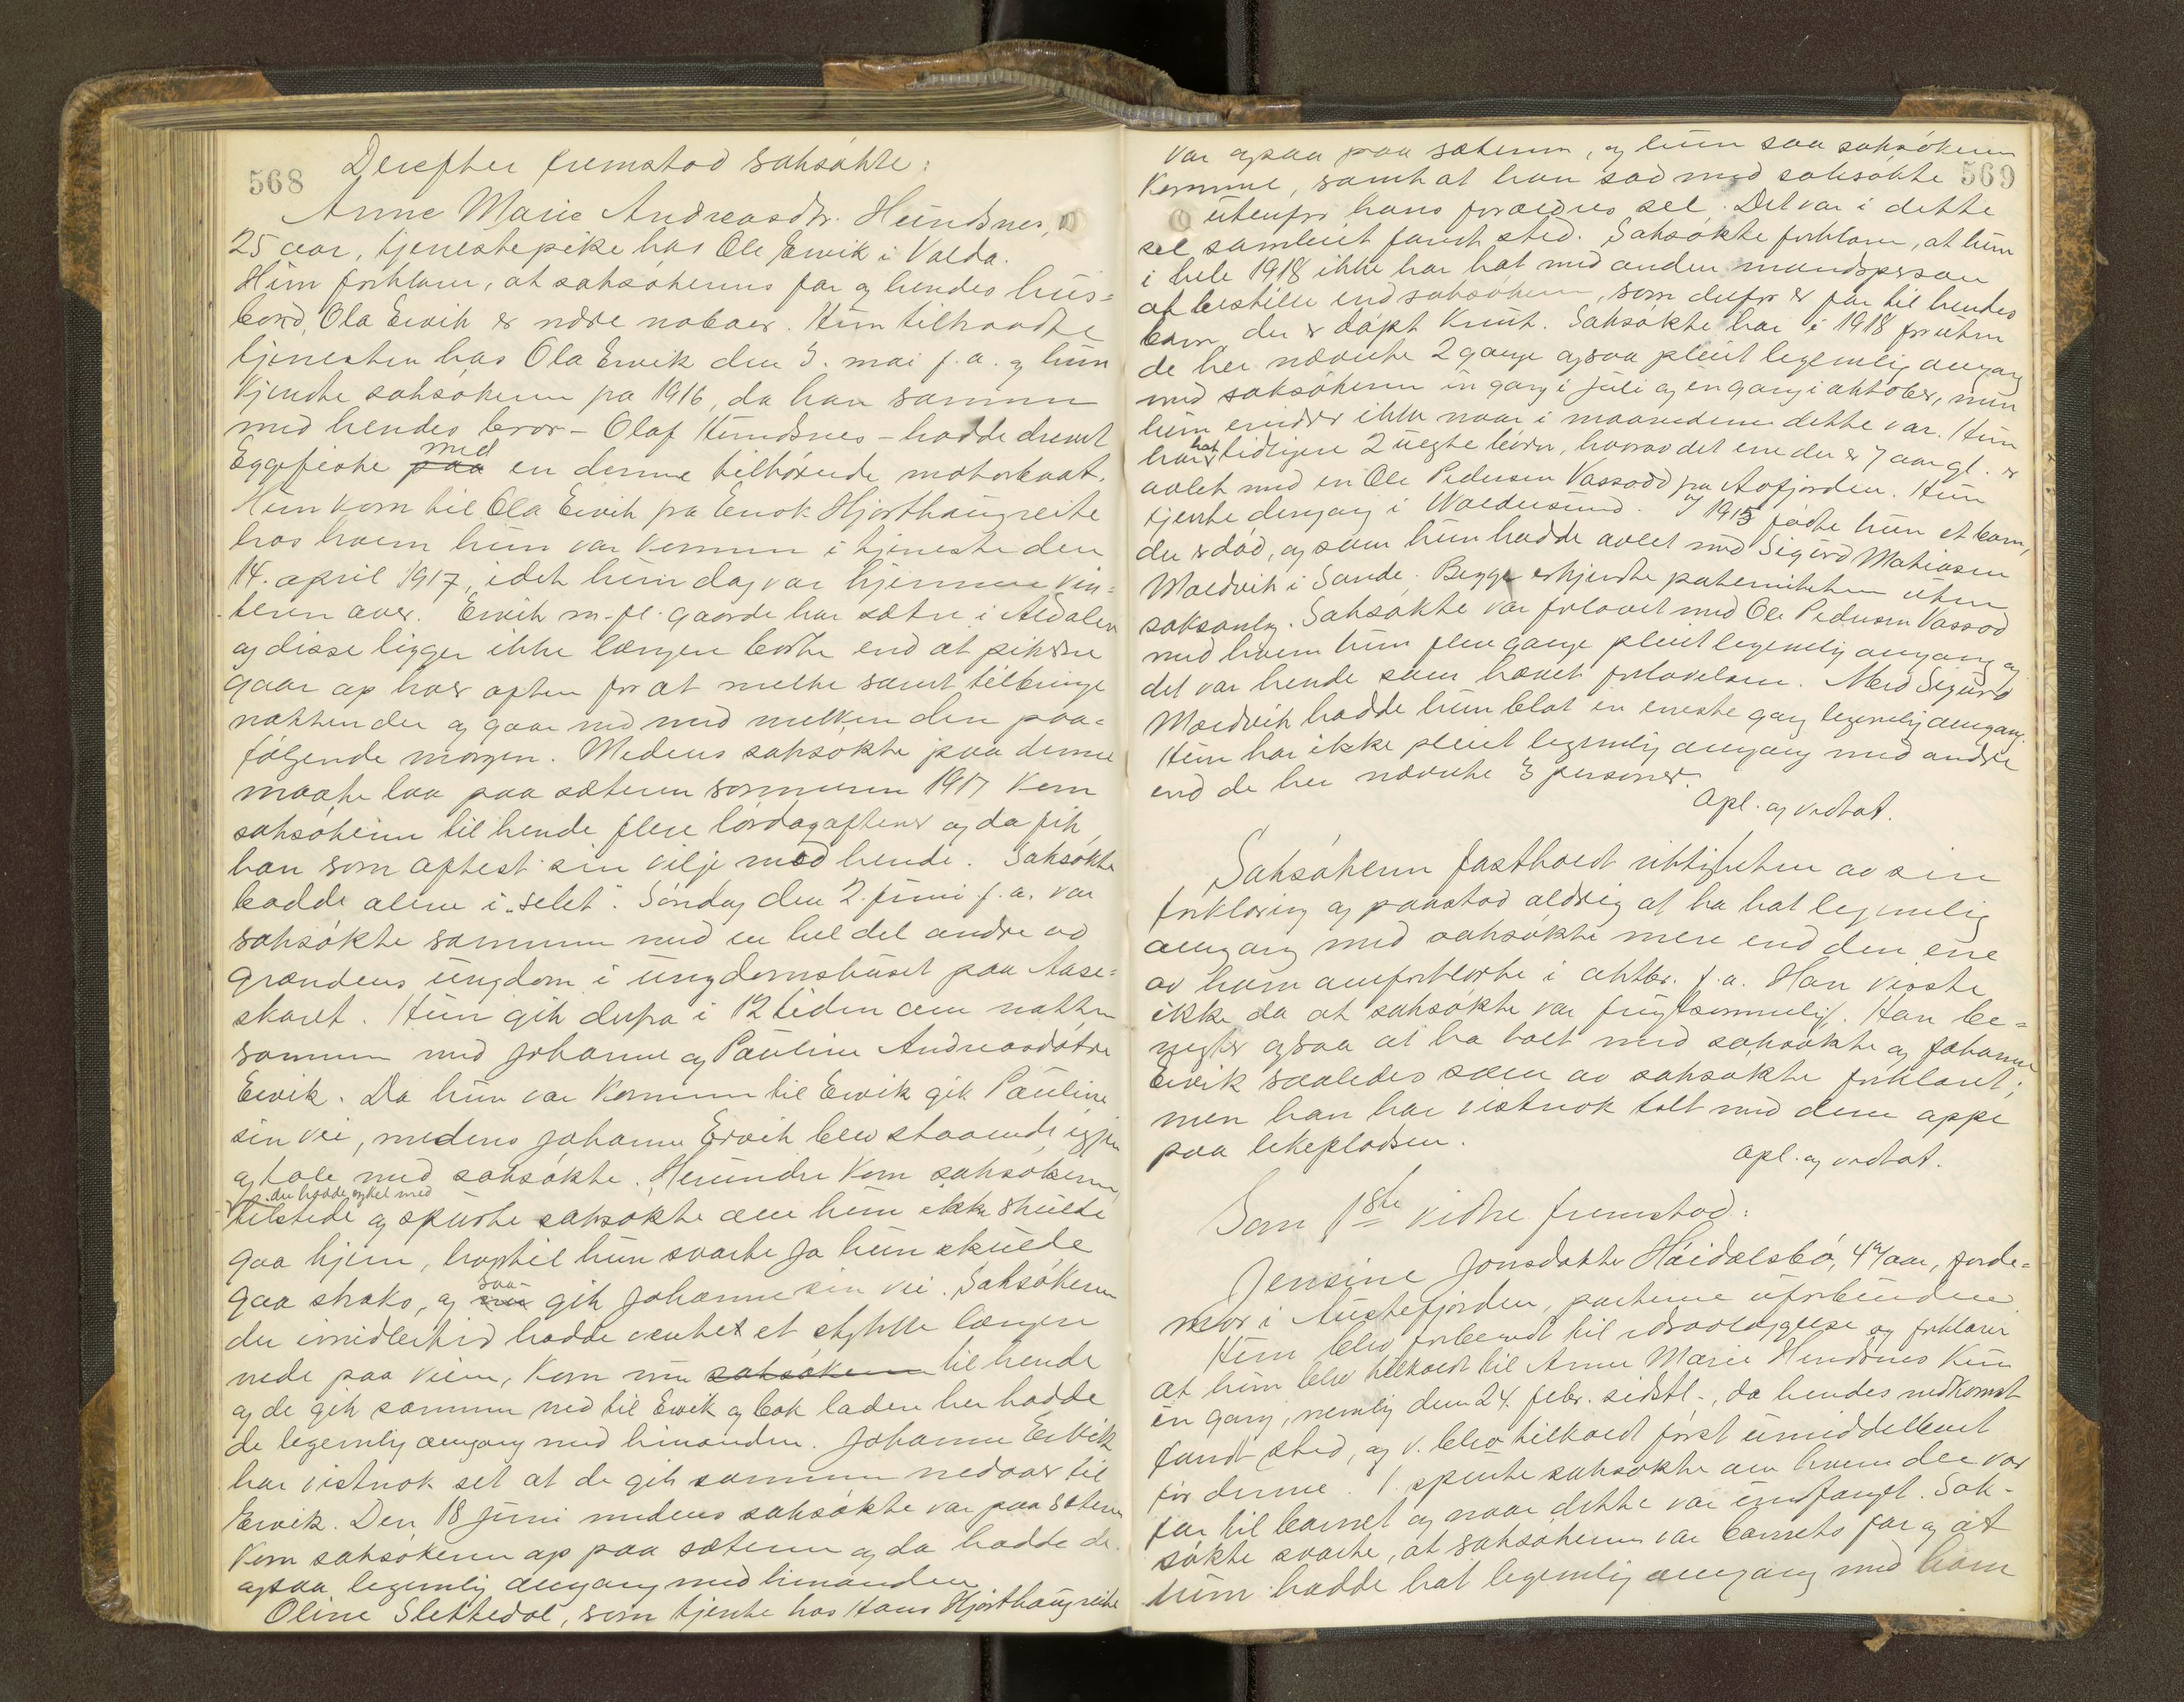 568 Derefter fremstod saksökte:
Anne Marie Andreasdr. Hundsnes,
25 aar, tjenestepike hos Ole Ervik i Volda.
Hun forklarer, at saksökerens far og hendes hus=
bond, Ola Ervik er nære naboer. Hun tiltraadte
tjenesten hos Ola Ervik den 3. mai f.a. og hun
kjendte saksökeren fra 1916, da han sammen
med hendes bror - Olaf Hundsnes - hadde drevet
Eggefiske paa med en denne tilhörende motorbaat.
Hun kom til Ola Ervik fra Enok Hjorthaugreite
hos hvem hun var kommen i tjeneste den
14. april 1917, idet hun dog var hjemme vin=
teren over. Ervik m. fl. gaarde har sæter i Aldalen
og disse ligger ikke længere borte end at pikerne
gaar op hver aften for at melke samt tilbringe
natten der og gaar ned med melken den paa=
fölgende morgen. Medens saksökte paa denne
maate laa paa sæteren sommeren 1917 kom
saksökeren til hende flere lördagaftener og da fik
han som oftest sin vilje med hende. Saksökte
hadde alene i "selet". Söndag den 2. juni f.a. var
saksökte sammen med en hel del andre av
grændens ungdom i ungdomshuset paa Aase=
skaret. Hun gik derfra i 12 tiden om natten
sammen med Johanne og Pauline Andreasdötre
Ervik. Da hun var kommen til Ervik gik Pauline
sin vei, medens Johanne Ervik blev staaende igjen
og tale med saksökte. Herunder kom saksökeren,
der hadde cykel med
tilstede og spurte saksökte om hun ikke skulde
gaa hjem, hvortil hun svarte Ja hun skulde
gaa straks, og saa gik Johanne sin vei. Saksökeren
der imidlertid hadde ventet et stykke længere
nede paa veien, kom nu saksökeren til hende
og de gik sammen ned til Ervik og bak laden her hadde
de legemlig omgang med hinanden. Johanne Ervik
har vistnok set at de gik sammen nedover til
Ervik. Den 18 juni medens saksökte var paa sæteren
kom saksökeren op paa sæteren og da hadde de
ogsaa legemlig omgang med hinanden.
Oline Slettedal, som tjente hos Hans Hjorthaugreite
var ogsaa paa sæteren, og hun saa saksökeren
komme, samt at han sad med saksökte 569
utenfor hans forældres sel. Det var i dette
sel samleiet fandt sted. Saksökte forklarer, at hun
i hele 1918 ikke har hat med anden mandsperson
at bestille end saksökeren, som derfor er far til hendes
barn, der er döpt Knut. Saksökte har i 1918 foruten
de her nævnte 2 gange ogsaa pleiet legemlig omgang
med saksökeren en gang i juli og en gang i oktober, men
hun erindrer ikke naar i maanedene dette var. Hun
har hat tidligere 2 uegte börn, hvorav det ene der er 7 aar gl. er
avlet med en Ole Pedersen Vassodd fra Aofjorden. Hun
tjente dengang i Valdersund. I 1915 födte hun et barn,
der er död, og som hun hadde avlet med Sigurd Matiasen
Moedvik i Sande. Begge erkjendte paterniteten uten
saksanlæg. Saksökte var forlovet med Ole Pedersen Vassod
med hvem hun flere gange pleiet legemlig omgang og
det var hende som hævet forlovelsen. Med Sigurd
Moedvik hadde hun blot en eneste gang legemlig omgang.
Hun har ikke pleiet legemlig omgang med andre
end de her nævnte 3 personer.
Opl. og vedtat.
Saksökeren fastholdt riktigheten av sin
forklaring og paastod aldrig at ha hat legemlig
omgang med saksökte mere end den ene
av ham omforklarte i oktbr. f.a. Han visste
ikke da at saksökte var frugtsommelig. Han be=
negter ogsaa at ha talt med saksökte og Johanne
Ervik saaledes som av saksökte forklaret;
men han har vistnok talt med dem oppe
paa lekepladsen.
Opl. og vedtat.
Som 1ste vidne fremstod:
Jensine Jonsdatter Höidalsbö, 42 aar, jorde=
mor i Austefjorden, parterne uforbunden.
Hun blev forberedt til edsavlæggelse og forklarer
at hun blev tilkaldt til Anne Marie Hundsnes kun
en gang, nemlig den 24. febr. sidstl., da hendes nedkomst
fandt sted, og v. blev tilkaldt först umiddelbart
för denne. V. spurte saksökte om hvem der var
far til barnet og naar dette var undfanget. Sak-
sökte svarte, at saksökeren var barnets far og at
hun hadde hat legemlig omgang med ham